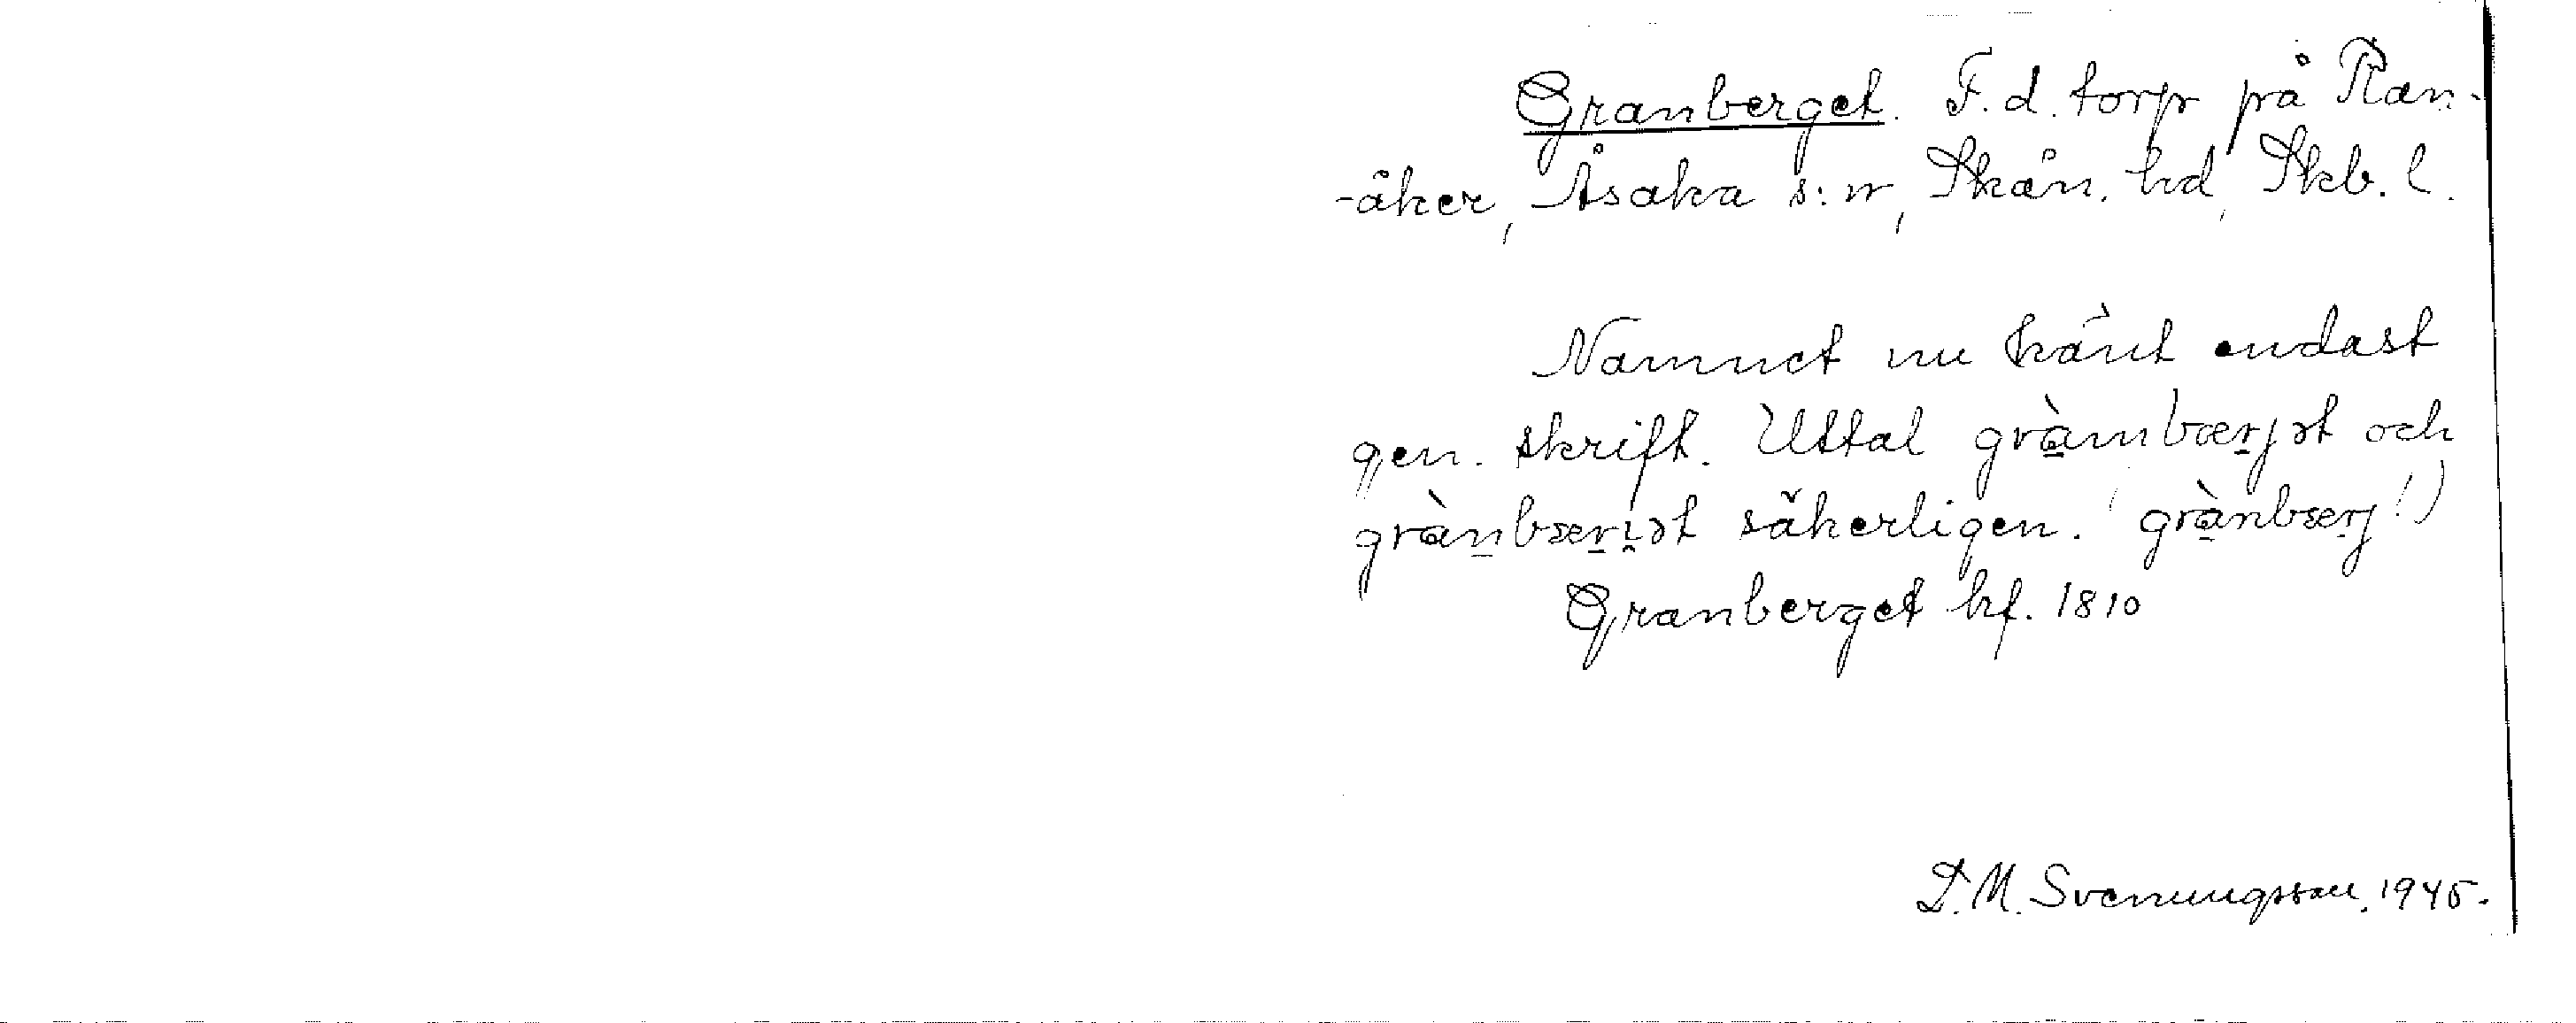 Granberget. F. d. torp på Ran-
-åker, Åsaka s:n, Skån. hd, Skb. l.
Namnet nu känt endast
gen. skrift. Uttal gràmbærjət och
grànbæri̯ət säkerligen. (grànbærj!)
Granberget hf. 1810
D. M. Svenungsson. 1945.